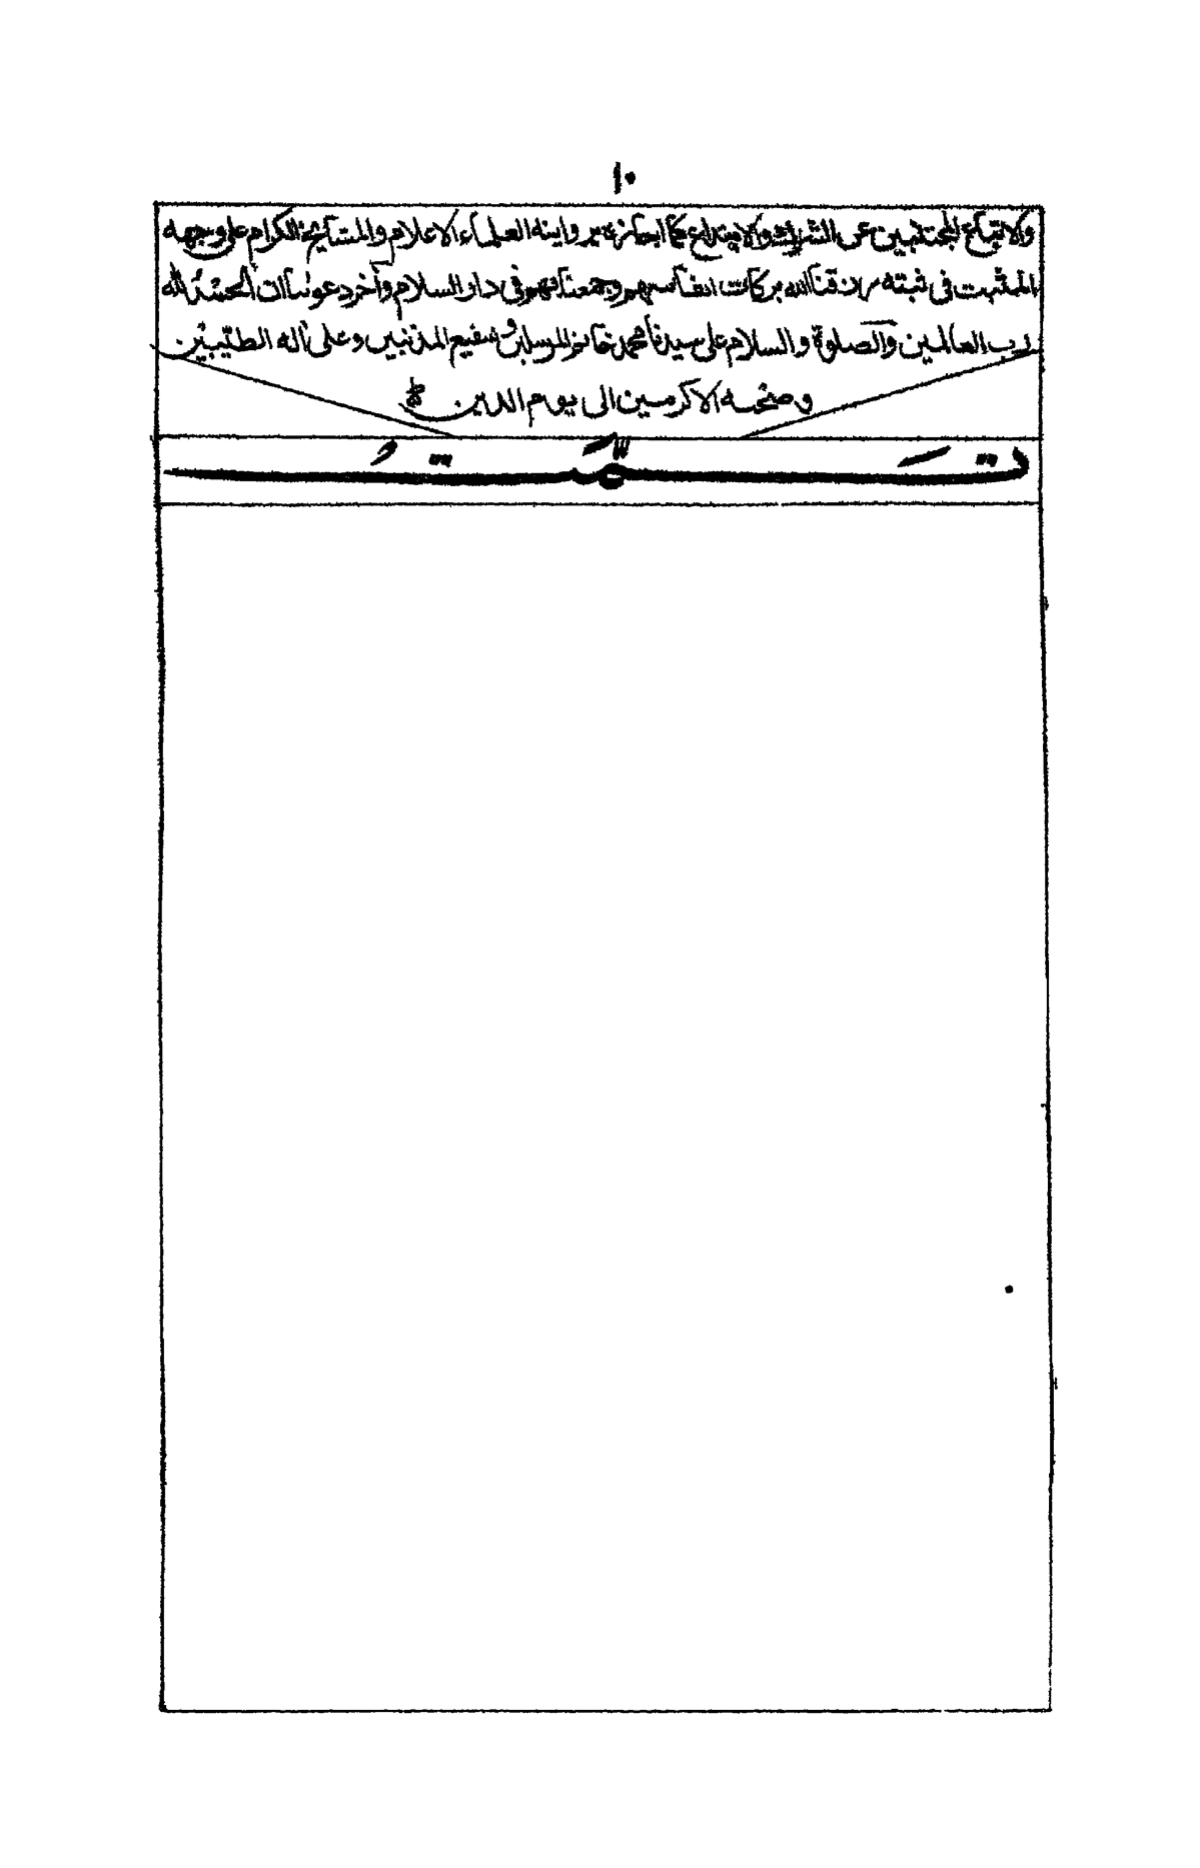 ١٠
والاتباع المجتنبين عن الشرك والابتداع كما اجازنى بروايته العلماء الاعلام والمشائخ الكرام على وجهه
المثبت فى ثبته رزقنا الله بركات انفاسهم وجمعنا لهم فى دار السلام وآخر دعونا ان الحمد لله
رب العالمين والصلوة والسلام على سيدنا محمد خاتم المرسلين وشفيع المذنبين وعلى آله الطيبين
وصحبه الاكرمين الى يوم الدين
تَمَّتُ